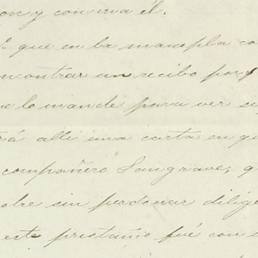 con y conserva él.
que en ba manopla co
encontrar un recibo por
lo mandé para ver si
alli una carta en qu
compañero Songrave, q
sin perdonar dilige
este prestamo fué con